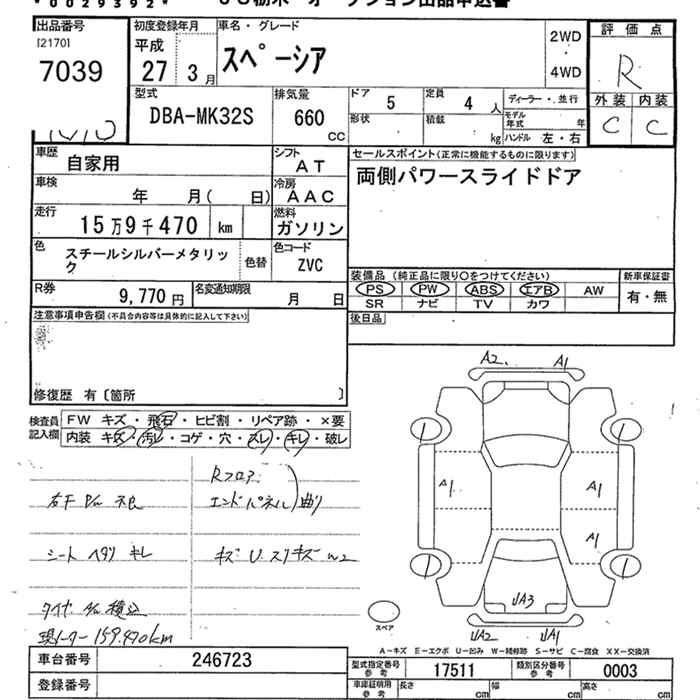 *0029392*
出品番号
[2170]
7039
初度登録年月
平成
27 3月
車名・グレード
スペーシア
2WD
4WD
評価点
R
外装 内装
C C
型式
DBA-MK32S
排気量
660 CC
ドア 5
定員 4人
形状
積載 kg
ディーラー・並行
モデル年式 年
ハンドル 左・右
車歴 自家用
シフト AT
車検 年 月( 日)
冷房 AAC
走行 15万9千470 km
燃料 ガソリン
色 スチールシルバーメタリック
色替
色コード ZVC
R券 9,770円
名変通知期限 月 日
セールスポイント(正常に機能するものに限ります)
両側パワースライドドア
装備品 (純正品に限り○をつけてください)
PS PW ABS エアB AW
SR ナビ TV カワ
新車保証書
有・無
後日品
注意事項申告欄(不具合内容等は具体的に記入して下さい)
修復歴 有〔箇所 〕
検査員記入欄
FW キズ・飛石・ヒビ割・リペア跡・×要
内装 キズ・汚レ・コゲ・穴・スレ・キレ・破レ
Rフロア
エンドパネル 曲り
シート ヘタリ キレ
タイヤ
現メーター 159,470km
A2. A1
A1 A1
A1
UA3
UA2 UA1
スペア
A-キズ E-エクボ U-凹み W-補修跡 S-サビ C-腐食 XX-交換済
車台番号 246723
登録番号
型式指定番号 参考 17511
類別区分番号 参考 0003
車庫証明用 参考 長さ cm 幅 cm 高さ cm